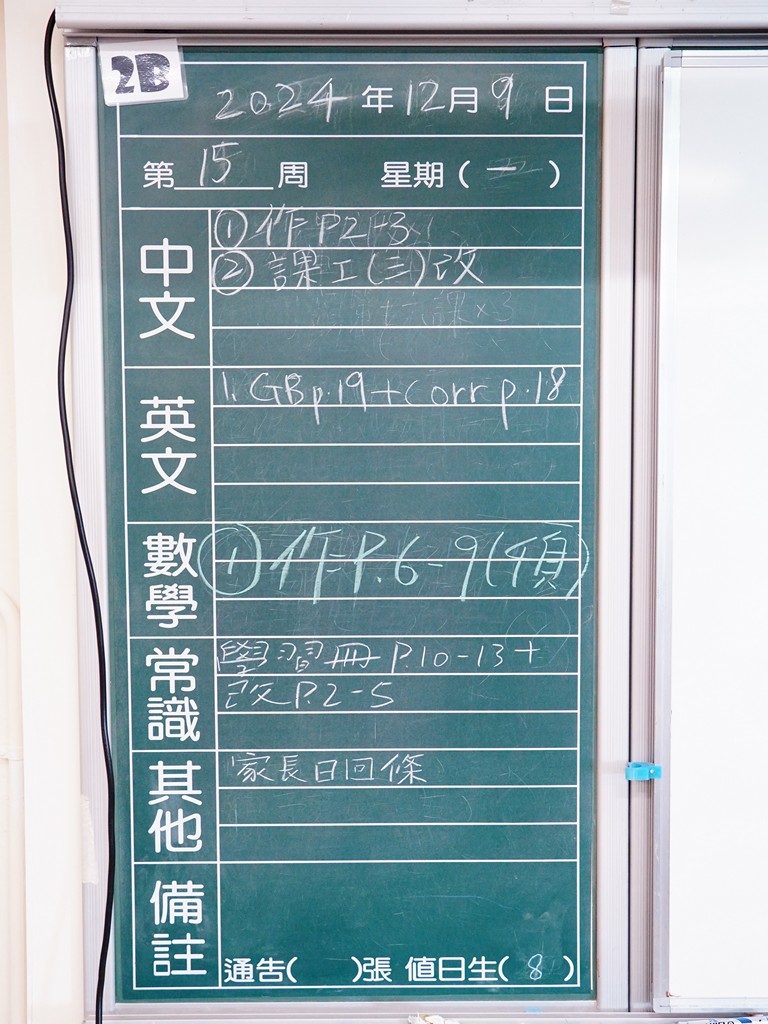 2B
2024年12月9日
第15周 星期(一)
中文
①作P.2-3
②課工(三)改
第十六課×3
英文
1. GB p.19+Corr p.18
數學
①作P.6-9(預)
常識
學習冊P.10-13+
改P.2-5
其他
家長日回條
備註
通告( )張 值日生(8)